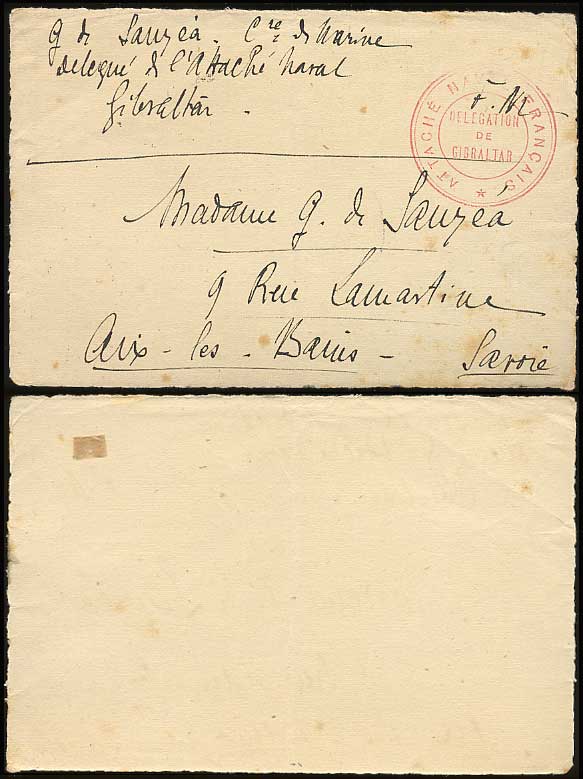 G. de Sauzéa. Cre de Marine
délégué de l'Attaché Naval
Gibraltar.
F. M
ATTACHÉ NAVAL FRANÇAIS
DELEGATION
DE
GIBRALTAR
*
Madame G. de Sauzéa
9 Rue Lamartine
Aix-les-Bains-
Savoie